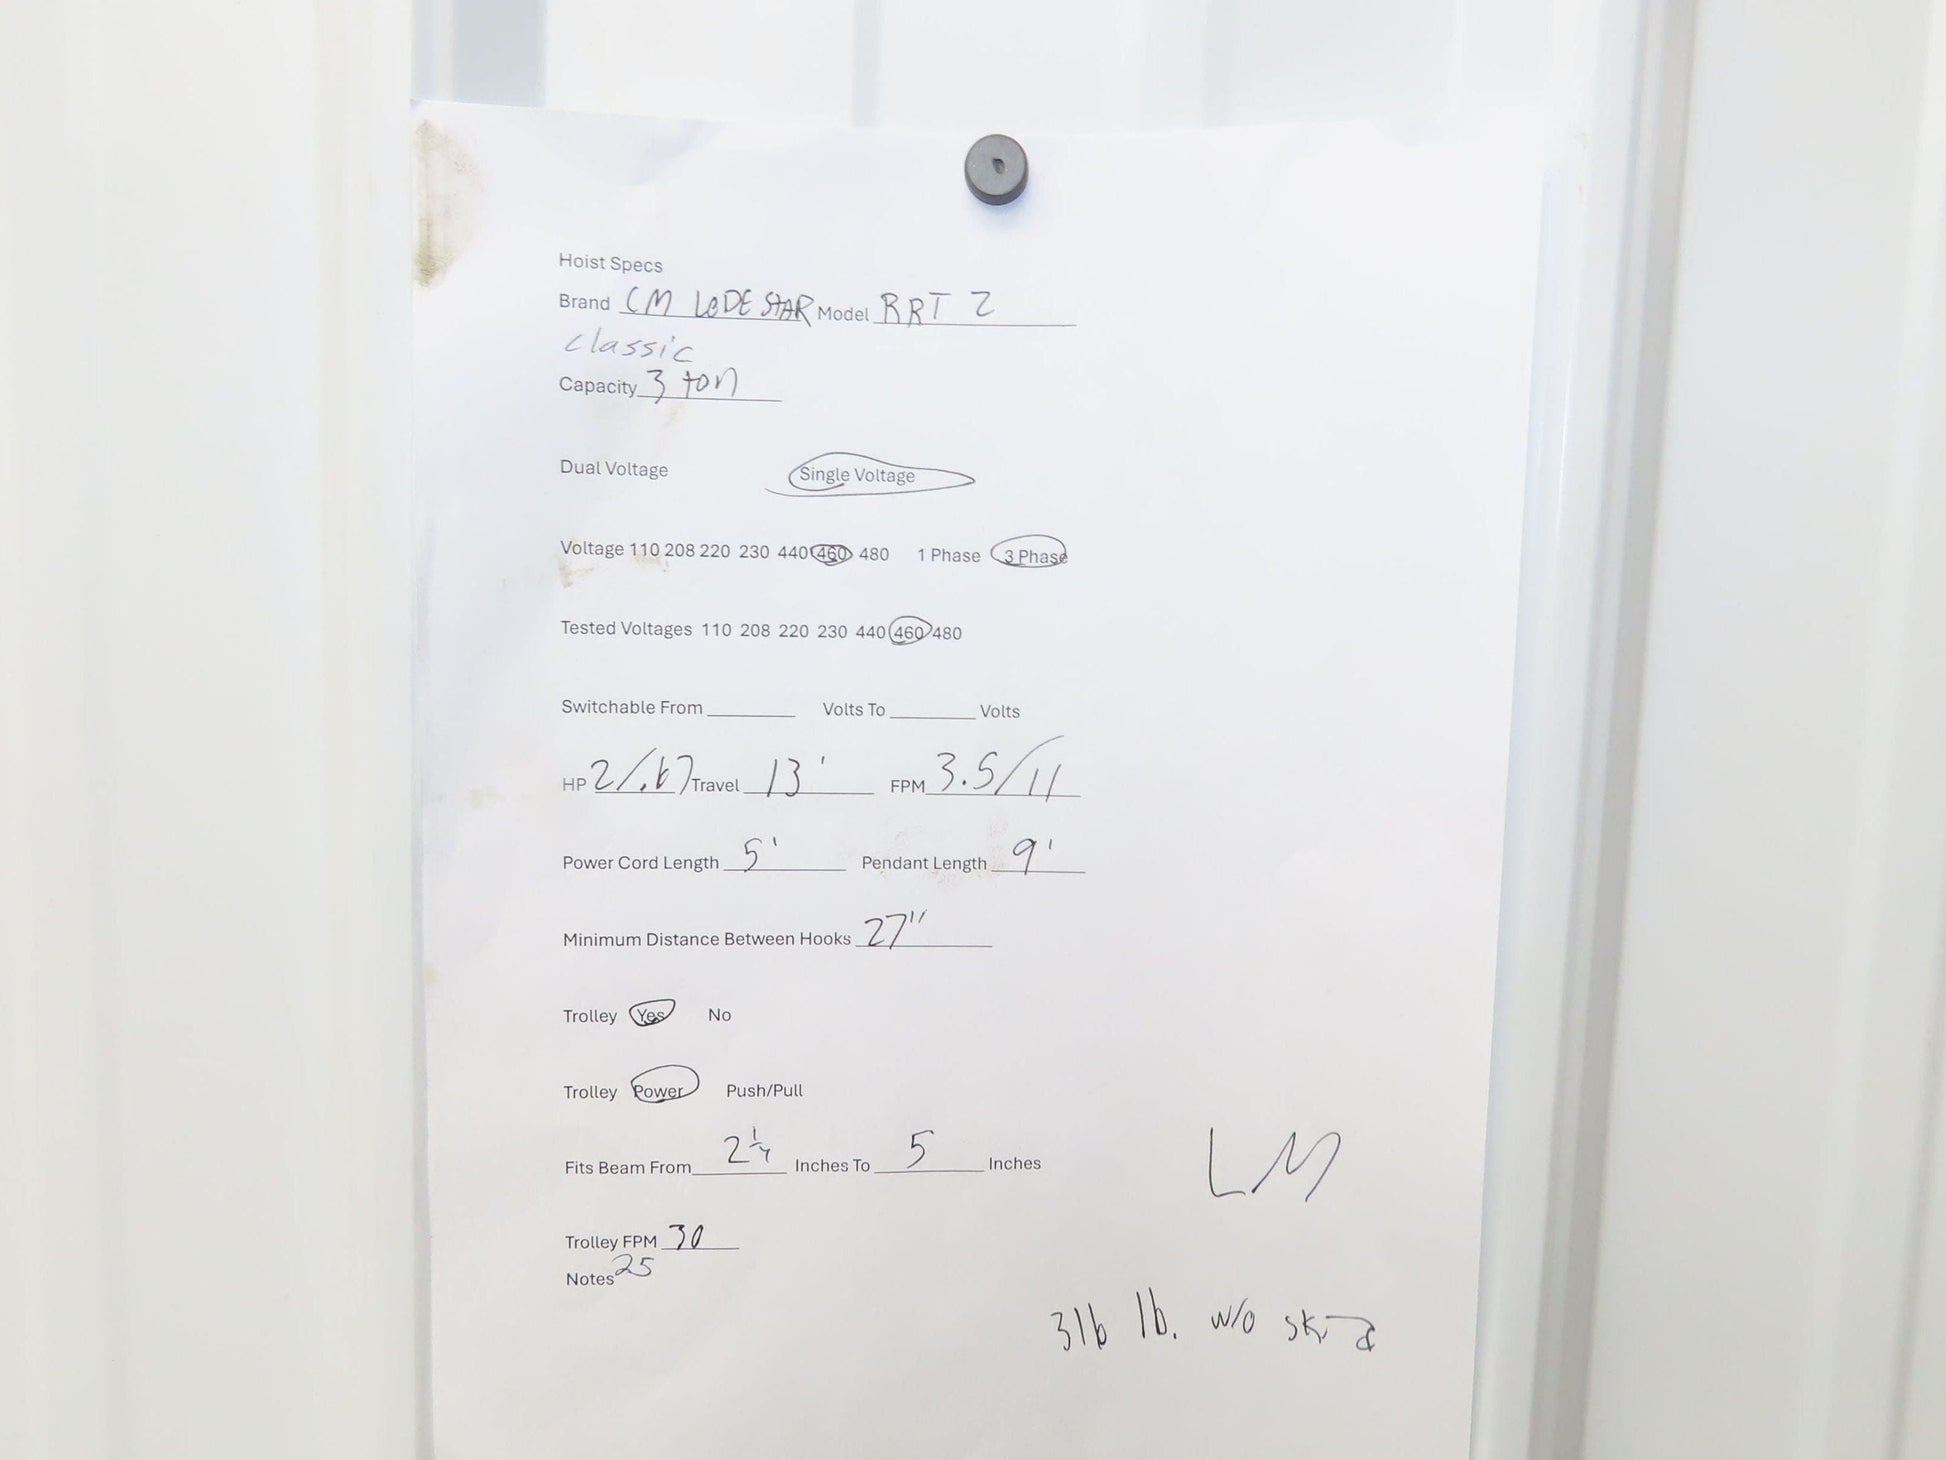 Hoist Specs
Brand CM LODESTAR Model RRT 2
classic
Capacity 3 ton
Dual Voltage Single Voltage
Voltage 110 208 220 230 440 460 480 1 Phase 3 Phase
Tested Voltages 110 208 220 230 440 460 480
Switchable From ________ Volts To ________ Volts
HP 2/.67 Travel 13' FPM 3.5/11
Power Cord Length 5' Pendant Length 9'
Minimum Distance Between Hooks 27"
Trolley Yes No
Trolley Power Push/Pull
Fits Beam From 2 1/4 Inches To 5 Inches
LM
Trolley FPM 30
Notes 25
316 lb. w/o skid